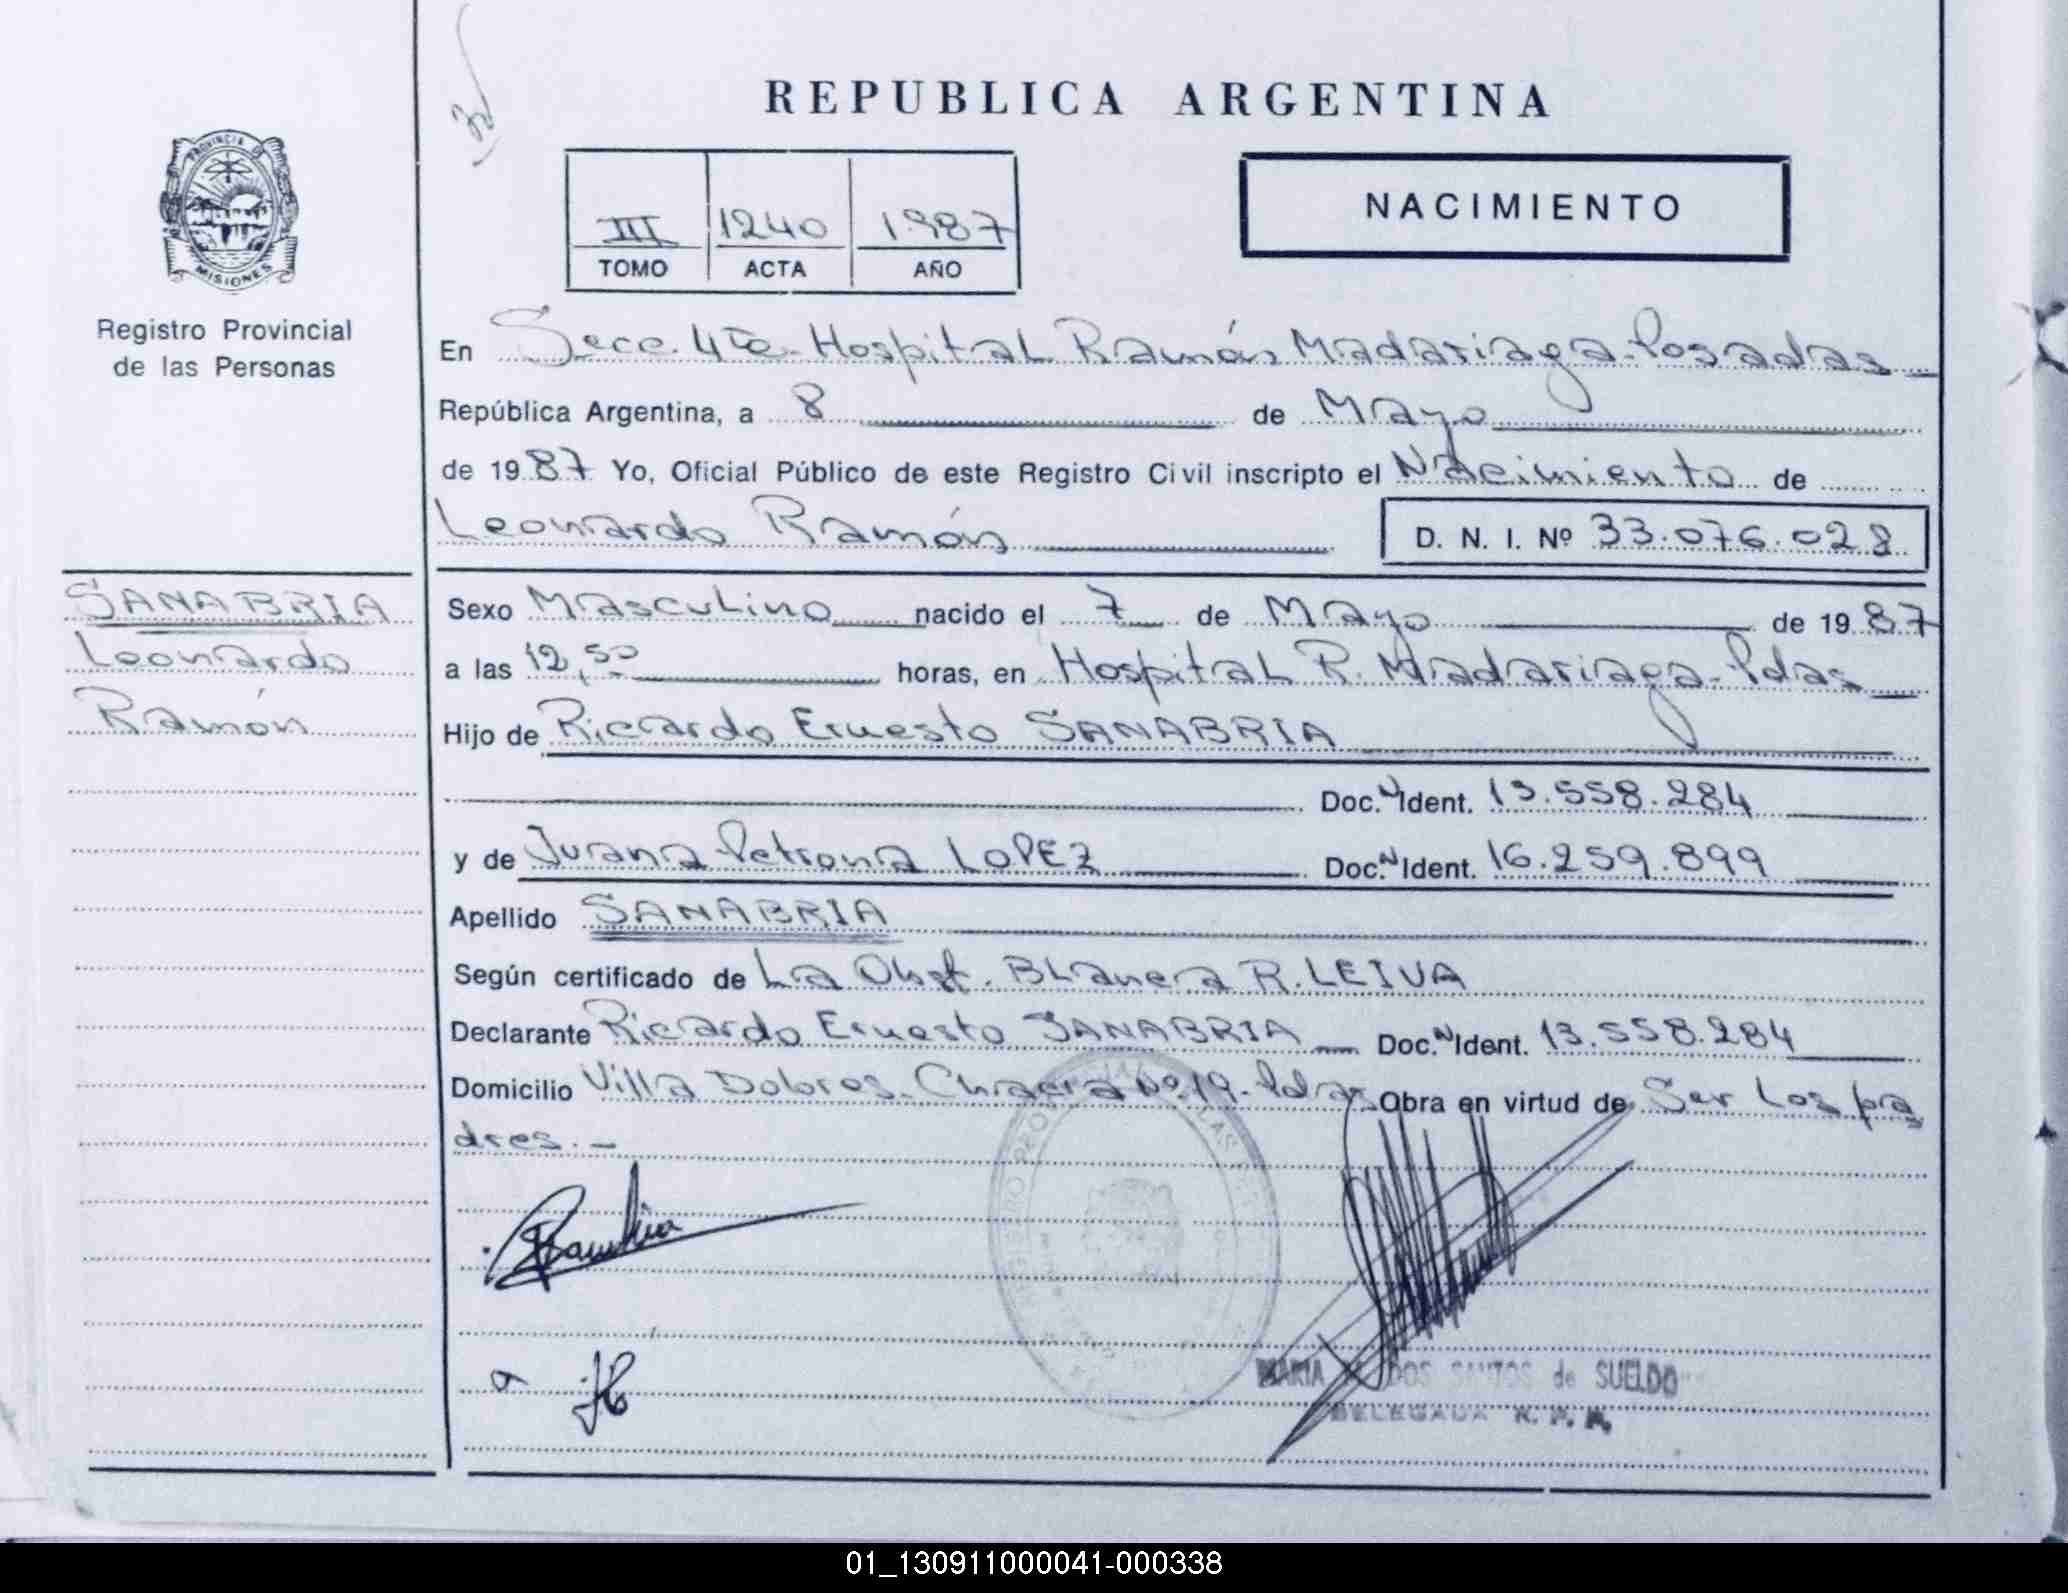 REPUBLICA ARGENTINA
PROVINCIA DE
MISIONES
Registro Provincial
de las Personas
III 1240 1987
TOMO ACTA AÑO
NACIMIENTO
En Secc. 4ta. Hospital Ramón Madariaga-Posadas
República Argentina, a 8 de Mayo
de 1987 Yo, Oficial Público de este Registro Civil inscripto el Nacimiento de
Leonardo Ramón D. N. I. Nº 33.076.028
SANABRIA
Leonardo
Ramón
Sexo Masculino nacido el 7 de Mayo de 1987
a las 12,50 horas, en Hospital R. Madariaga-Pdas
Hijo de Ricardo Ernesto SANABRIA
Doc. N Ident. 13.558.284
y de Juana Petrona LOPEZ Doc. N Ident. 16.259.899
Apellido SANABRIA
Según certificado de La Obst. Blanca R. LEIVA
Declarante Ricardo Ernesto SANABRIA Doc. N Ident. 13.558.284
Domicilio Villa Dolores. Chacra Nº 19-Pdas Obra en virtud de Ser Los pa
dres.-
MARIA DOS SANTOS de SUELDO
DELEGADA R. P. P.
01_130911000041-000338